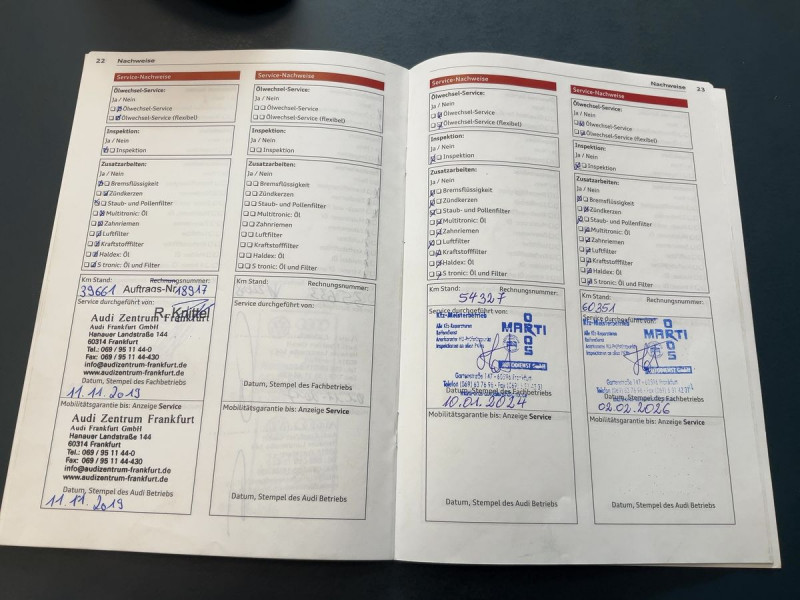 22 Nachweise
Service-Nachweise
Ölwechsel-Service:
Ja / Nein
Ölwechsel-Service
Ölwechsel-Service (flexibel)
Inspektion:
Ja / Nein
Inspektion
Zusatzarbeiten:
Ja / Nein
Bremsflüssigkeit
Zündkerzen
Staub- und Pollenfilter
Multitronic: Öl
Zahnriemen
Luftfilter
Kraftstofffilter
Haldex: Öl
S tronic: Öl und Filter
Km Stand: Rechnungsnummer:
39661 Auftrags-Nr 18917
Service durchgeführt von:
R. Knittel
Audi Zentrum Frankfurt
Audi Frankfurt GmbH
Hanauer Landstraße 144
60314 Frankfurt
Tel.: 069 / 95 11 44-0
Fax: 069 / 95 11 44-430
info@audizentrum-frankfurt.de
www.audizentrum-frankfurt.de
Datum, Stempel des Fachbetriebs
11.11.2019
Mobilitätsgarantie bis: Anzeige Service
Audi Zentrum Frankfurt
Audi Frankfurt GmbH
Hanauer Landstraße 144
60314 Frankfurt
Tel.: 069 / 95 11 44-0
Fax: 069 / 95 11 44-430
info@audizentrum-frankfurt.de
www.audizentrum-frankfurt.de
Datum, Stempel des Audi Betriebs
11.11.2019
Service-Nachweise
Ölwechsel-Service:
Ja / Nein
Ölwechsel-Service
Ölwechsel-Service (flexibel)
Inspektion:
Ja / Nein
Inspektion
Zusatzarbeiten:
Ja / Nein
Bremsflüssigkeit
Zündkerzen
Staub- und Pollenfilter
Multitronic: Öl
Zahnriemen
Luftfilter
Kraftstofffilter
Haldex: Öl
S tronic: Öl und Filter
Km Stand: Rechnungsnummer:
Service durchgeführt von:
Datum, Stempel des Fachbetriebs
Mobilitätsgarantie bis: Anzeige Service
Datum, Stempel des Audi Betriebs
Nachweise 23
Service-Nachweise
Ölwechsel-Service:
Ja / Nein
Ölwechsel-Service
Ölwechsel-Service (flexibel)
Inspektion:
Ja / Nein
Inspektion
Zusatzarbeiten:
Ja / Nein
Bremsflüssigkeit
Zündkerzen
Staub- und Pollenfilter
Multitronic: Öl
Zahnriemen
Luftfilter
Kraftstofffilter
Haldex: Öl
S tronic: Öl und Filter
Km Stand: Rechnungsnummer:
54327
Service durchgeführt von:
Kfz-Meisterbetrieb
Alle Kfz-Reparaturen
Reifendienst
MARTI
AUTODIENST GmbH
Gartenstraße 147 - 60596 Frankfurt
Datum, Stempel des Fachbetriebs
10.01.2024
Mobilitätsgarantie bis: Anzeige Service
Datum, Stempel des Audi Betriebs
Service-Nachweise
Ölwechsel-Service:
Ja / Nein
Ölwechsel-Service
Ölwechsel-Service (flexibel)
Inspektion:
Ja / Nein
Inspektion
Zusatzarbeiten:
Ja / Nein
Bremsflüssigkeit
Zündkerzen
Staub- und Pollenfilter
Multitronic: Öl
Zahnriemen
Luftfilter
Kraftstofffilter
Haldex: Öl
S tronic: Öl und Filter
Km Stand: Rechnungsnummer:
60351
Service durchgeführt von:
Kfz-Meisterbetrieb
Alle Kfz-Reparaturen
Reifendienst
MARTI
AUTODIENST GmbH
Gartenstraße 147 - 60596 Frankfurt
Datum, Stempel des Fachbetriebs
02.02.2026
Mobilitätsgarantie bis: Anzeige Service
Datum, Stempel des Audi Betriebs